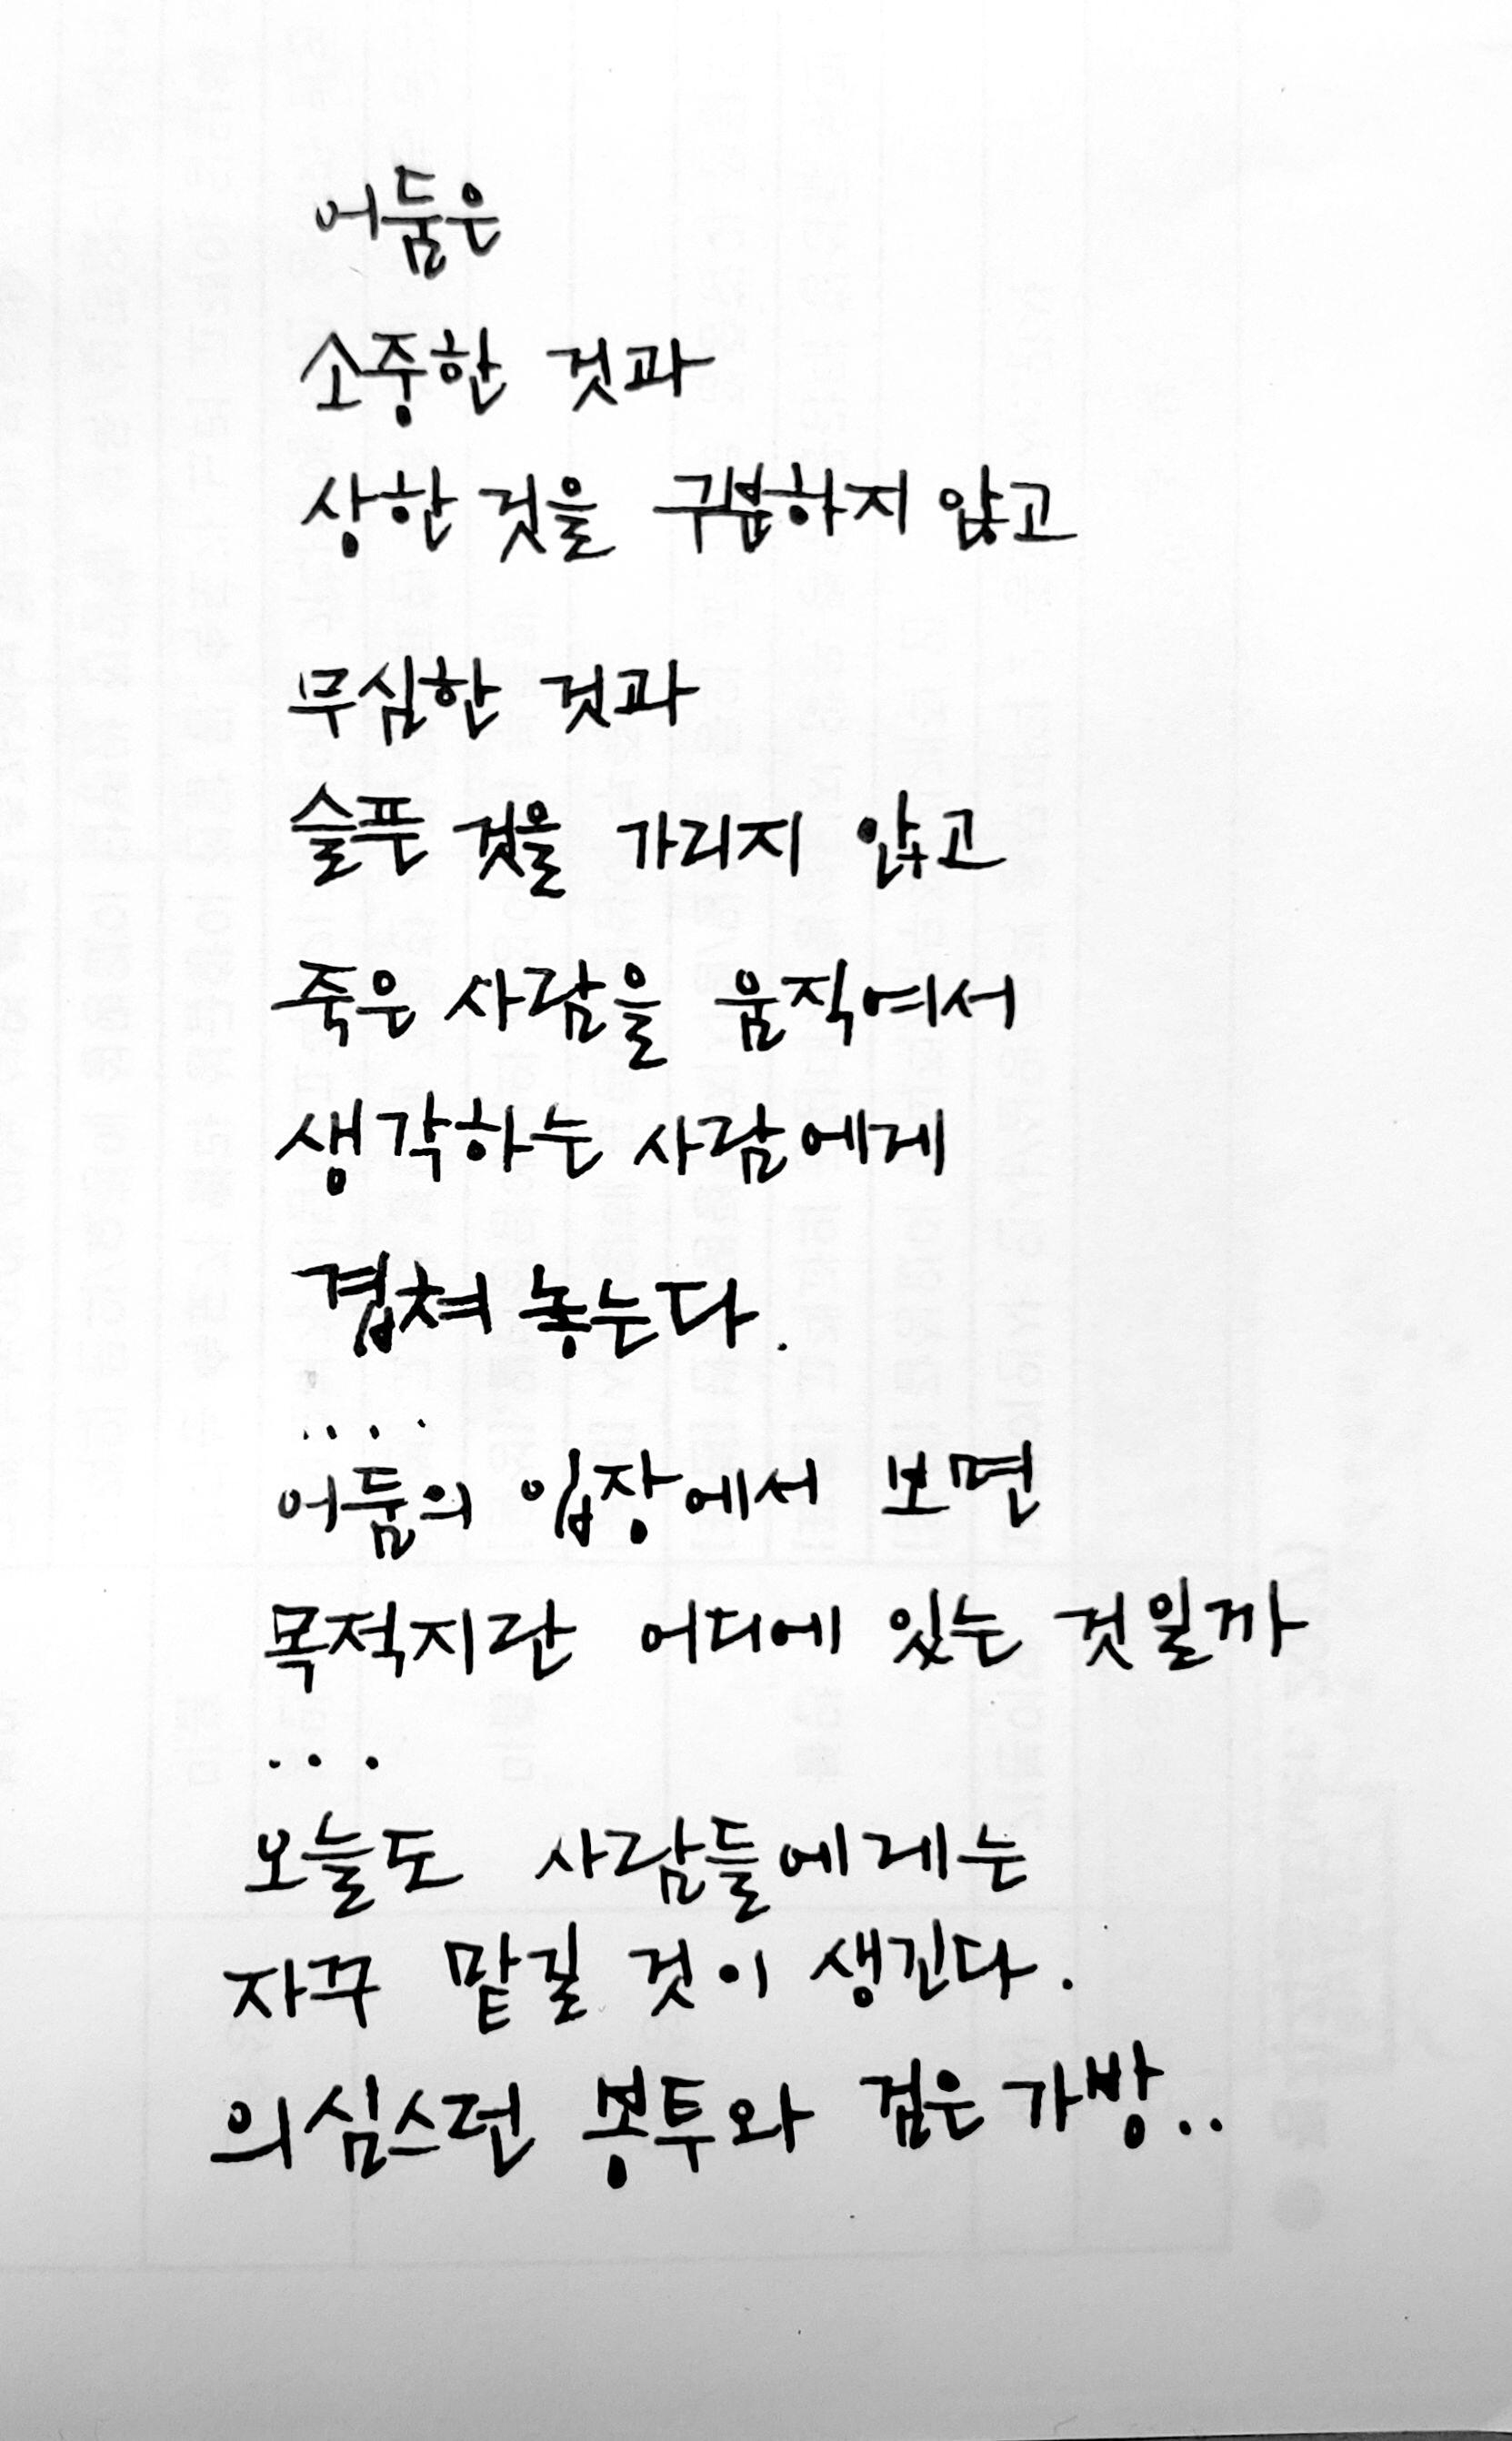 어둠은
소중한 것과
상한 것을 구분하지 않고
무심한 것과
슬픈 것을 가리지 않고
죽은 사람을 움직여서
생각하는 사람에게
겹쳐 놓는다.
....
어둠의 입장에서 보면
목적지란 어디에 있는 것일까
...
오늘도 사람들에게는
자꾸 맡길 것이 생긴다.
의심스런 봉투와 검은 가방..